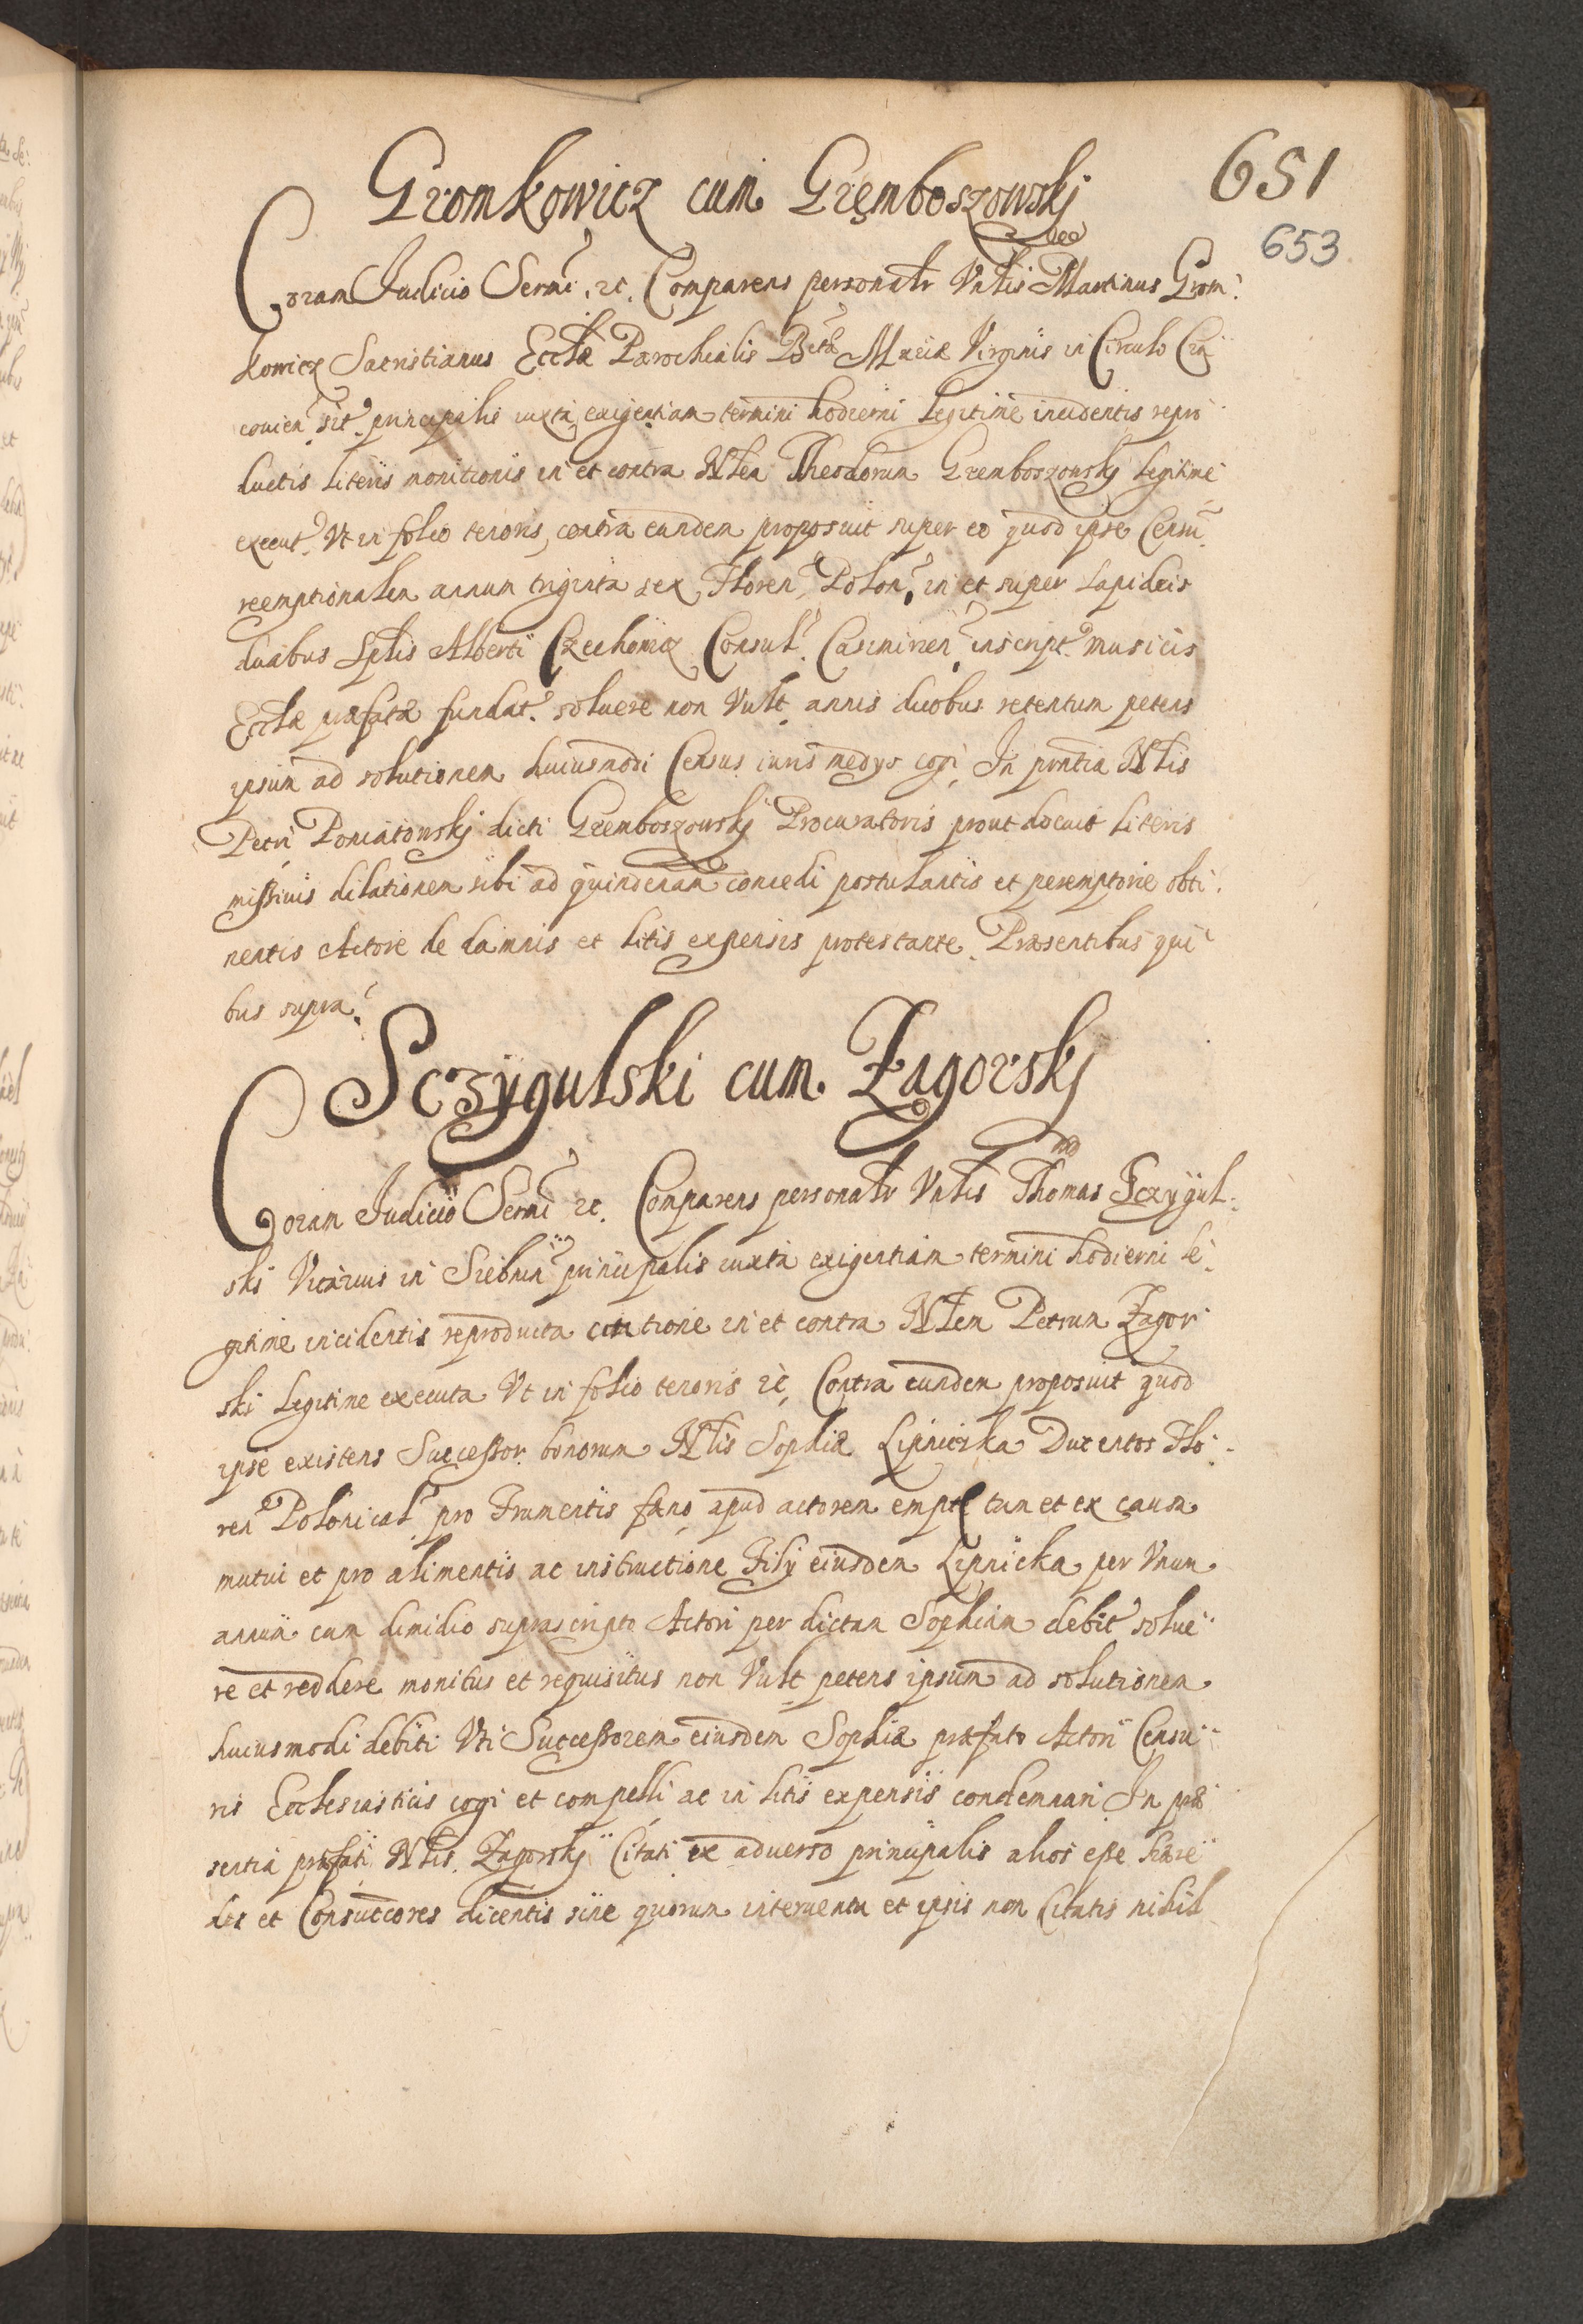 Gromkowicz cum Gręmboszowskj
651
653
Coram Judicio Sermi. etc. Comparens personalr Vnlis Martinus Grom:
kowicz Sacristianus Ecclæ Parochialis Btæ Mariæ Virginis in Circulo Cra
couien. sit. principalis iuxta exigentiam termini hodierni legitime incidentis repro
ductis literis monitionis in et contra Nblem Theodorum Gremboszowskj legitime
execut. Vt in folio tenoris, contra eundem proposuit super eo quod ipse Censu.
reemptionalem annum triginta sex Floren. Polon. in et super lapideis
duabus Spblis Alberti Czechowicz Consul. Casimirien. inscript. musicis
Ecclæ præfatæ fundat. soluere non Vult annis duobus retentum petens
ipsum ad solutionem huiusmodi Census iuris medys cogi, In pntia Nblis
Petri Poniatowskj dicti Gremboszowskj Procuratoris prout docuit literis
missiuis dilationem sibi ad quindenam concedi postulantis et peremptorie obti.
nentis Actore de damnis et litis expensis protestante. Præsentibus qui
bus supra.
Sczygulski cum. Zagorskj
Coram Judicio Sermi etc. Comparens personalr Vnlis Thomas Sczygul.
ski Vicarius in Siebun. principalis iuxta exigentiam termini hodierni le.
gitime incidentis reproducta citatione in et contra Nblem Petrum Zagor
ski legitime executa Vt in folio tenoris etc, Contra eundem proposuit quod
ipse existens Successor bonorum Nblis Sophiæ Lipniczka Ducentos Flo.
ren Polonical. pro Frumentis fæno apud actorem empt tam et ex causa
mutui et pro alimentis ac instructione Filij eiusdem Lipnicka per Vnum
annum cum dimidio suprascripto Actori per dictam Sophiam debit. solue
re et reddere monitus et requisitus non Vult petens ipsum ad solutionem
huiusmodi debiti Vti Successorem eiusdem Sophiæ præfato Actori Censu
ris Ecclesiasticis cogi et compelli ac in litis expensis condemnari In præ
sentia præfati Nblis. Zagorskij Citati ex aduerso principalis alios esse hære
des et Consuccores dicentis sine quorum interuentu et ipsis non Citatis nihil